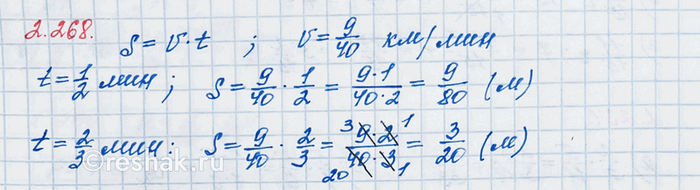 2.268. S = v · t ; v = 9/40 км/мин
t = 1/2 мин ; S = 9/40 · 1/2 = 9·1/40·2 = 9/80 (м)
t = 2/3 мин : S = 9/40 · 2/3 = 3 9·2 1/20 40·3 1 = 3/20 (м)
©reshak.ru